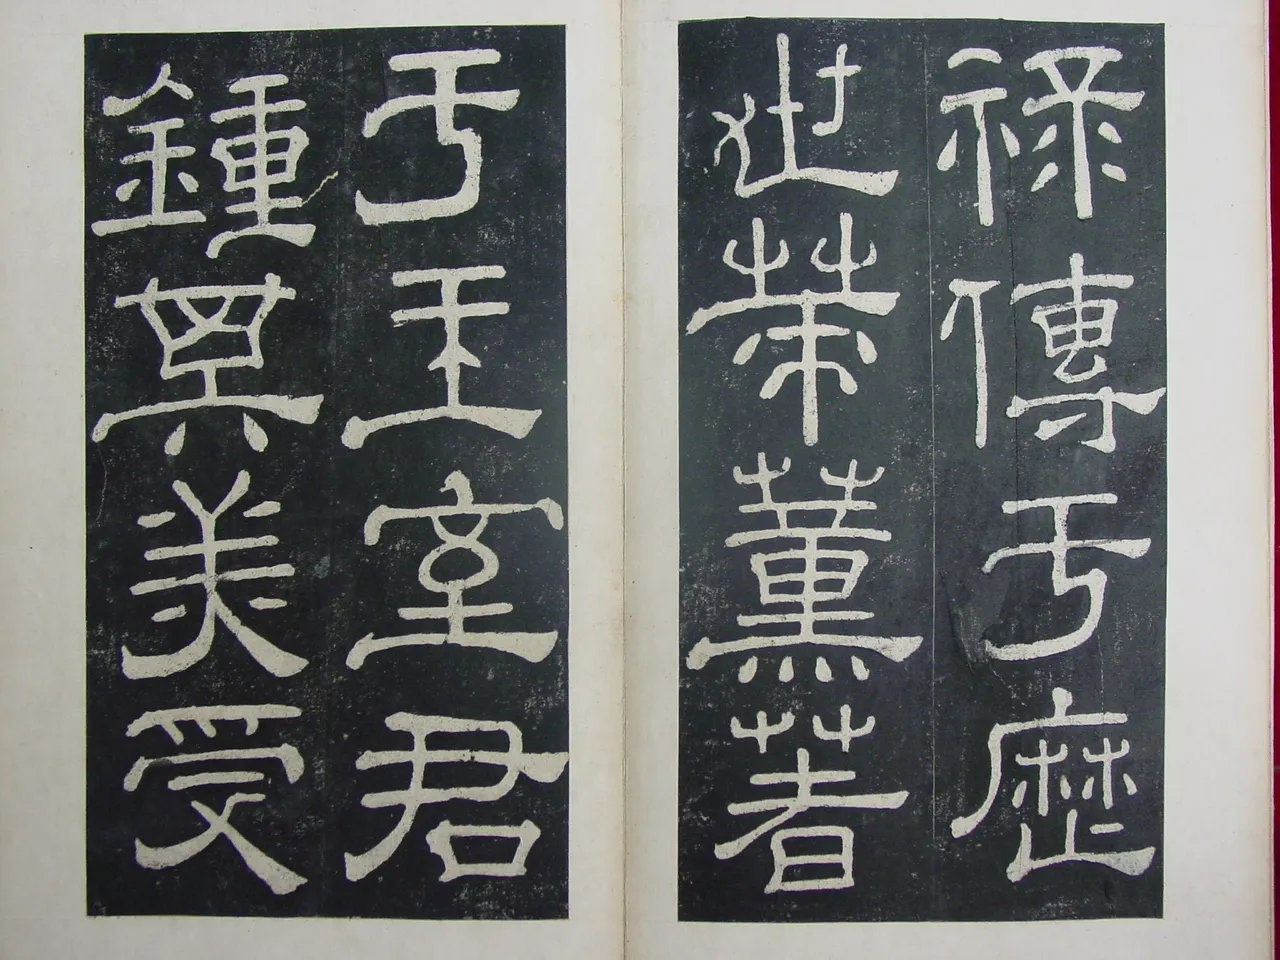 祿傳于歷
世策薰著
于王室君
鍾其美受